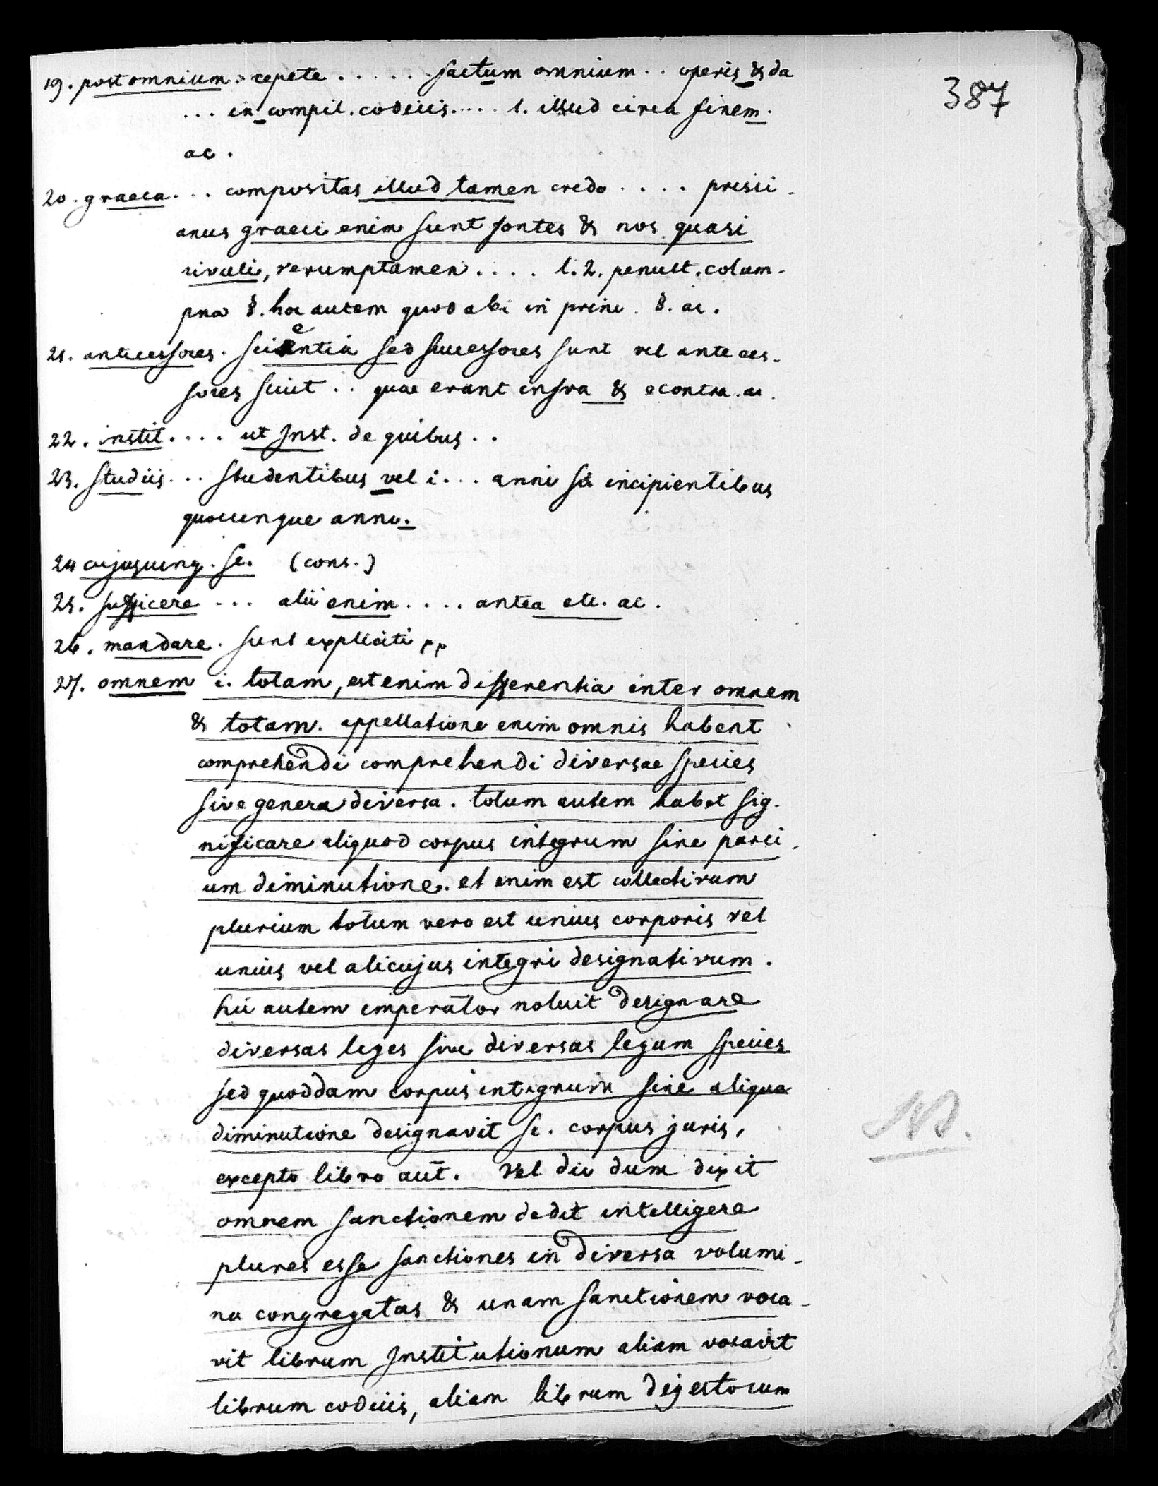 19. post omnium. repete . . . . . . factum omnium . . operis & da
. . . in compil. codicis. . . . l. illud circa finem.
ac.
387
20. graeca. . . compositas illud tamen credo . . . . prisci-
anus graeci enim sunt fontes & nos quasi
rivuli, verumptamen . . . . l. 2. penult. colum-
pna §. hoc autem quod ubi in princ. §. ac.
21. antecessores. scientia sed successores sunt vel anteces-
sores sicut . . quae erant infra & econtra. ac.
22. instit. . . . ut Inst. de quibus . .
23. studiis . . . studentibus vel i . . . anni sc incipientibus
quocunque anno.
24 cujusuinq. sc. (cons.)
25. sufficere . . . alii enim . . . . antea etc. ac.
26. mandare. sunt expliciti
27. omnem i. totam, est enim differentia inter omnem
& totam. appellatione enim omnis habent
comprehendi comprehendi diversae species
sive genera diversa. totum autem habet sig-
nificare aliquod corpus integrum sine parci-
um diminutione. et enim est collectivum
plurium totum vero est unius corporis vel
unius vel alicujus integri designativum.
hic autem emperator noluit designare
diversas leges sive diversas legum species
sed quoddam corpus integrum sine aliqua
diminutione designavit sc. corpus juris,
excepto libro aut. Vel dic dum dixit
omnem sanctionem dedit intelligere
plures esse sanctiones in diversa volumi-
na congregatas & unam sanctionem voca-
vit librum Institutionum aliam vocavit
librum codicis, aliam librum digestorum